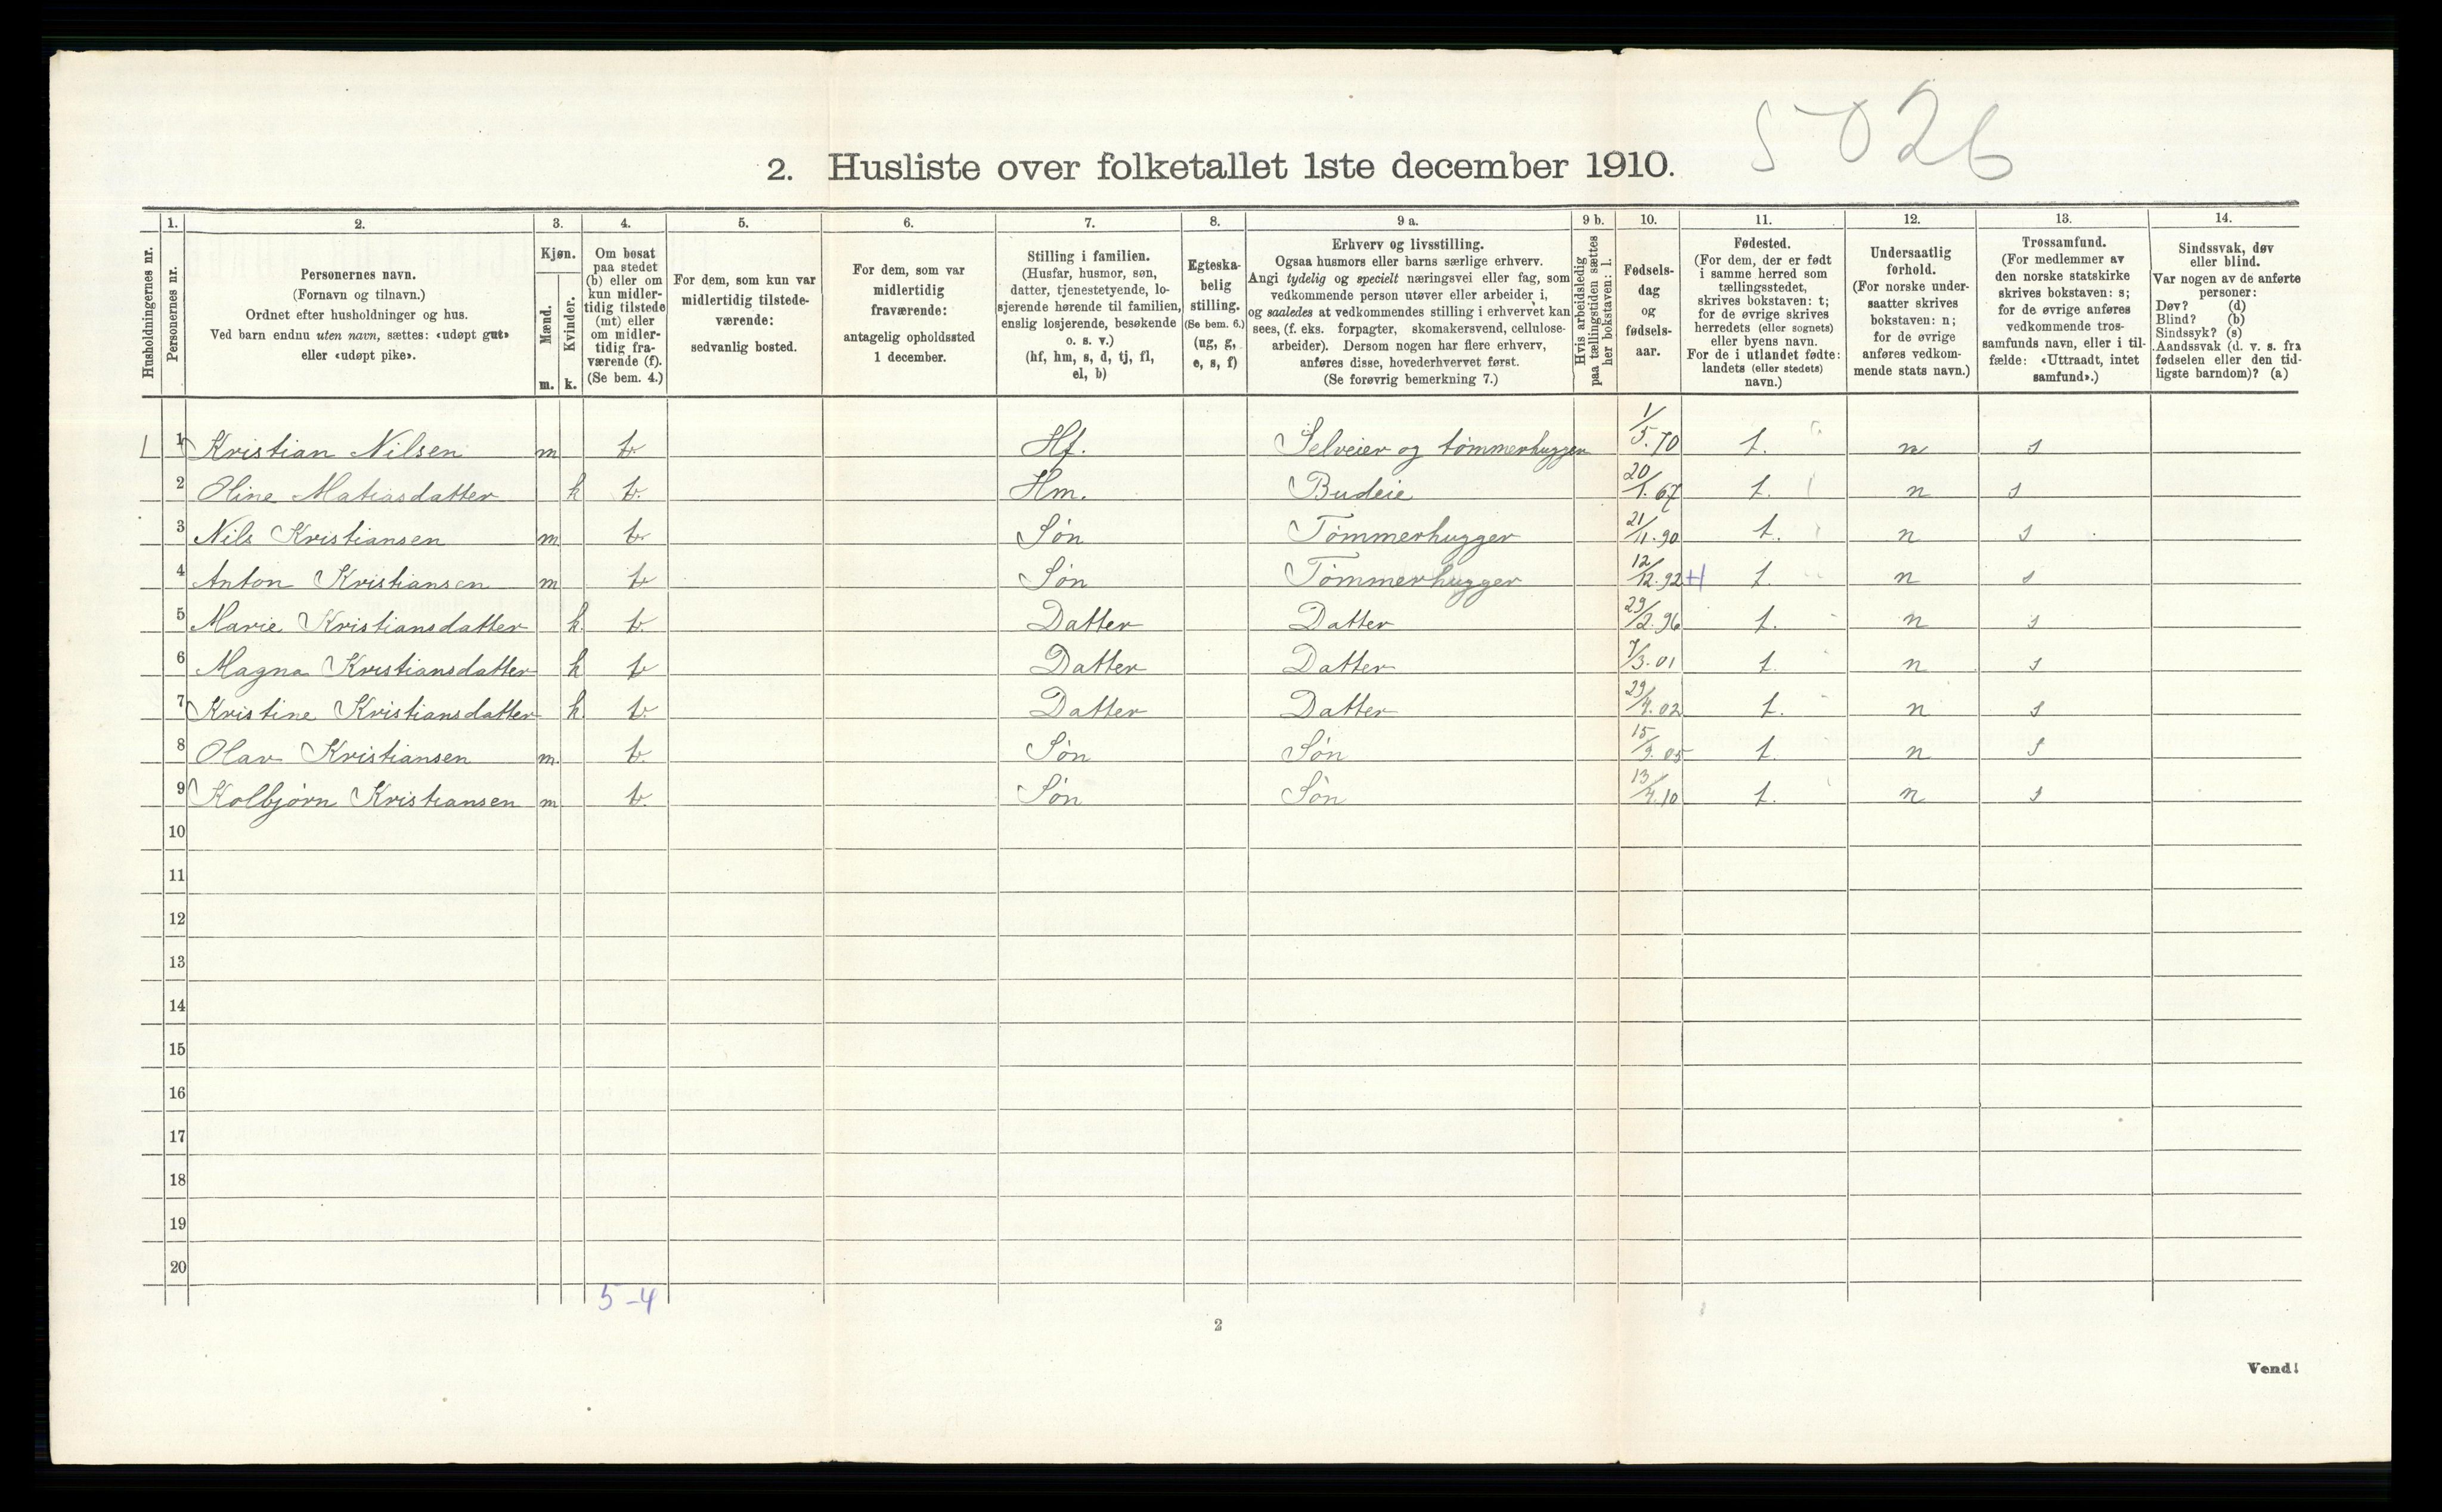 5026
2. Husliste over folketallet 1ste december 1910.
Husholdningernes nr.
1. Personernes nr.
2. Personernes navn.
(Fornavn og tilnavn.)
Ordnet efter husholdninger og hus.
Ved barn endnu uten navn, sættes: «udøpt gut»
eller «udøpt pike».
3. Kjøn.
Mænd. m.
Kvinder. k.
4. Om bosat
paa stedet
(b) eller om
kun midler-
tidig tilstede
(mt) eller
om midler-
tidig fra-
værende (f).
(Se bem. 4.)
5. For dem, som kun var
midlertidig tilstede-
værende:
sedvanlig bosted.
6. For dem, som var
midlertidig
fraværende:
antagelig opholdssted
1 december.
7. Stilling i familien.
(Husfar, husmor, søn,
datter, tjenestetyende, lo-
sjerende hørende til familien,
enslig losjerende, besøkende
o. s. v.)
(hf, hm, s, d, tj, fl,
el, b)
8. Egteska-
belig
stilling.
(Se bem. 6.)
(ug, g,
e, s, f)
9 a. Erhverv og livsstilling.
Ogsaa husmors eller barns særlige erhverv.
Angi tydelig og specielt næringsvei eller fag, som
vedkommende person utøver eller arbeider i,
og saaledes at vedkommendes stilling i erhvervet kan
sees, (f. eks. forpagter, skomakersvend, cellulose-
arbeider). Dersom nogen har flere erhverv,
anføres disse, hovederhvervet først.
(Se forøvrig bemerkning 7.)
9 b. Hvis arbeidsledig
paa tællingstiden sættes
her bokstaven: l.
10. Fødsels-
dag
og
fødsels-
aar.
11. Fødested.
(For dem, der er født
i samme herred som
tællingsstedet,
skrives bokstaven: t;
for de øvrige skrives
herredets (eller sognets)
eller byens navn.
For de i utlandet fødte:
landets (eller stedets)
navn.)
12. Undersaatlig
forhold.
(For norske under-
saatter skrives
bokstaven: n;
for de øvrige
anføres vedkom-
mende stats navn.)
13. Trossamfund.
(For medlemmer av
den norske statskirke
skrives bokstaven: s;
for de øvrige anføres
vedkommende tros-
samfunds navn, eller i til-
fælde: «Uttraadt, intet
samfund».)
14. Sindssvak, døv
eller blind.
Var nogen av de anførte
personer:
Døv? (d)
Blind? (b)
Sindssyk? (s)
Aandssvak (d. v. s. fra
fødselen eller den tid-
ligste barndom)? (a)
1 1 Kristian Nilsen m b. Hf. Selveier og tømmerhugger 1/5.70 t. n s
2 Oline Matiasdatter k b. Hm. Budeie 20/1.67 t. n s
3 Nils Kristiansen m b. Søn Tømmerhugger 21/11.90 t. n s
4 Anton Kristiansen m b Søn Tømmerhugger 12/12.92 t. n s
5 Marie Kristiansdatter k. b. Datter Datter 29/2.96 t. n s
6 Magna Kristiansdatter k b Datter Datter 7/3.01 t. n s
7 Kristine Kristiansdatter k. b. Datter Datter 29/4.02 t. n s
8 Olav Kristiansen m. b. Søn Søn 15/9.05 t. n s
9 Kolbjørn Kristiansen m b. Søn Søn 13/4.10 t. n s
10
11
12
13
14
15
16
17
18
19
20
5-4
2
Vend!